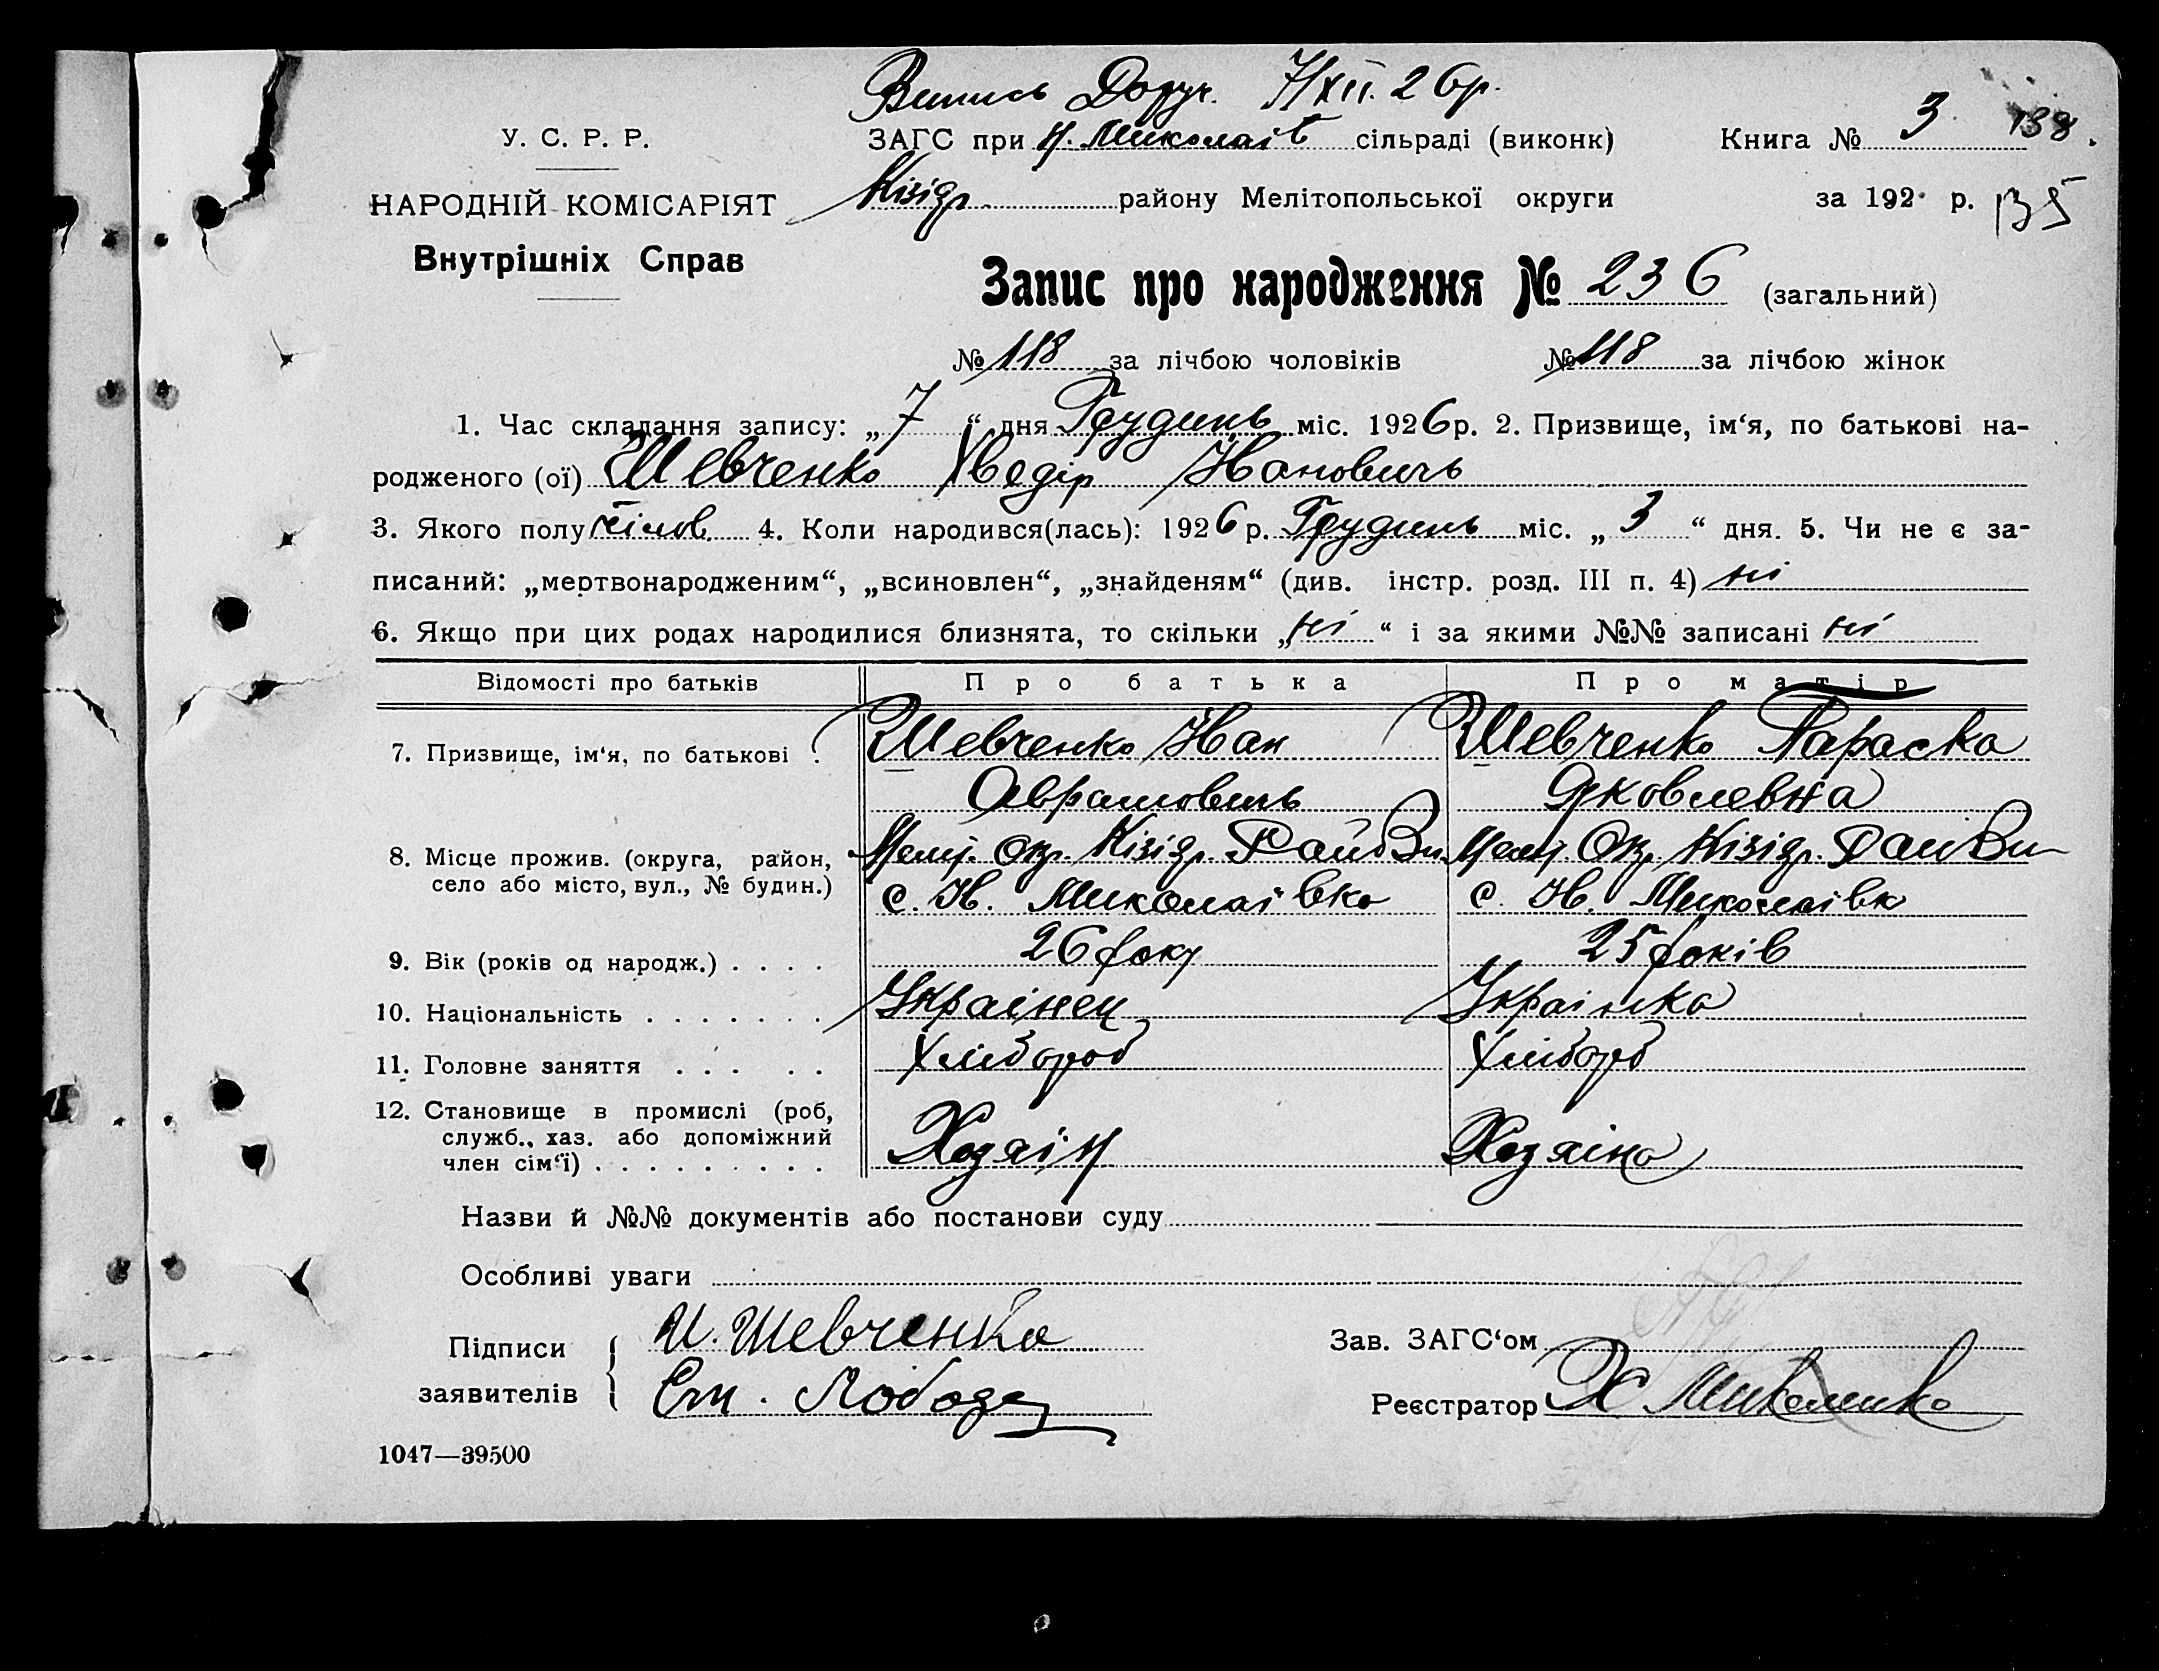 Випись Доруч. 7/XII. 26р.
У. С. Р. Р.
ЗАГС при Н. Миколаїв сільраді (виконк)
Книга № 3 138.
НАРОДНІЙ КОМІСАРІЯТ
Кізідр. району Мелітопольської округи
за 192 р. 135
Внутрішніх Справ
Запис про народження № 236 (загальний)
№ 118 за лічбою чоловіків № 118 за лічбою жінок
1. Час складання запису: „7“ дня Грудинь міс. 1926р. 2. Призвище, ім‘я, по батькові на-
родженого (ої) Шевченко Хведір Ивановичь
3. Якого полу чілов. 4. Коли народився(лась): 1926р. Грудинь міс. „3“ дня. 5. Чи не є за-
писаний: „мертвонародженим“, „всиновлен“, „знайденям“ (див. інстр. розд. III п. 4) ні
6. Якщо при цих родах народилися близнята, то скільки „ні“ і за якими №№ записані ні
Відомості про батьків Про батька Про матір
7. Призвище, ім‘я, по батькові Шевченко Иван Шевченко Параска
Аврамовичь Яковлевна
8. Місце прожив. (округа, район, Меліт. Окр. Кізідр. Рай Меліт. Окр. Кізідр. Рай
село або місто, вул., № будин.) с. Н. Миколаївка с. Н. Миколаївк
9. Вік (років од народж.) . . . . 26 року 25 років
10. Національність . . . . . . . Украінец Украінка
11. Головне заняття . . . . . Хлібороб Хліборб
12. Становище в промислі (роб,
служб., хаз. або допоміжний
член сім‘ї) . . . . . . . . . Хозяін Хозяіна
Назви й №№ документів або постанови суду
Особливі уваги
Підписи И. Шевченко Зав. ЗАГС‘ом
заявителів Ст. Лобода Реєстратор Х Миколенко
1047—39500